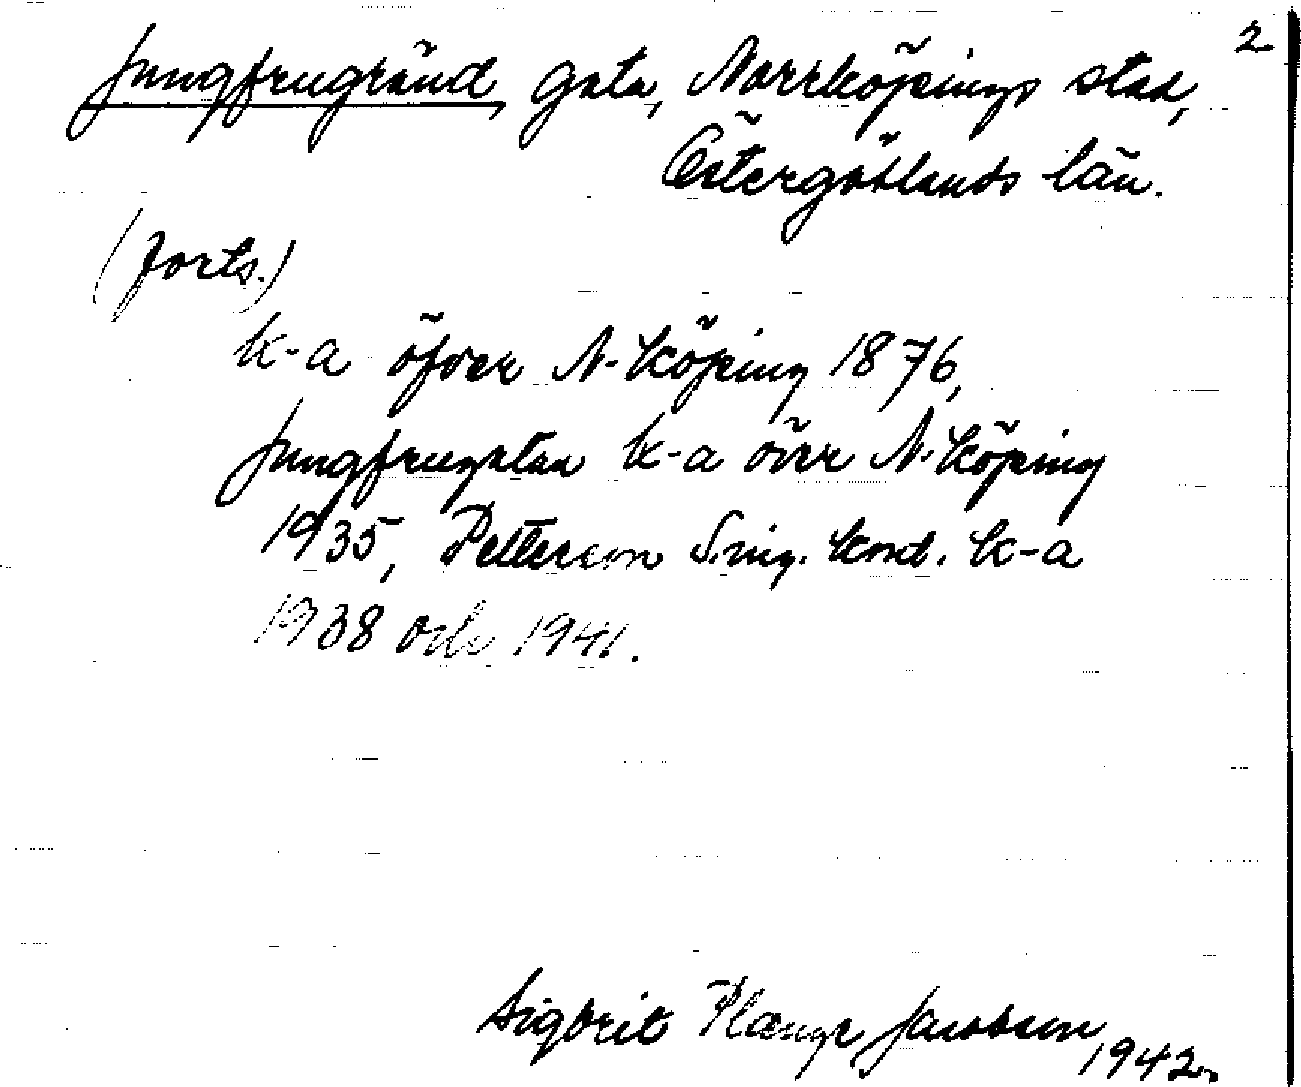 2
Jungfrugränd, gata, Norrköpings stad,
Östergötlands län.
(forts.)
k-a öfver N-köping 1876,
Jungfrugatan k-a över N-köping
1935, Petterson k-a
1938 och 1941.
Sigbrit Plænge Jacobson
1942.